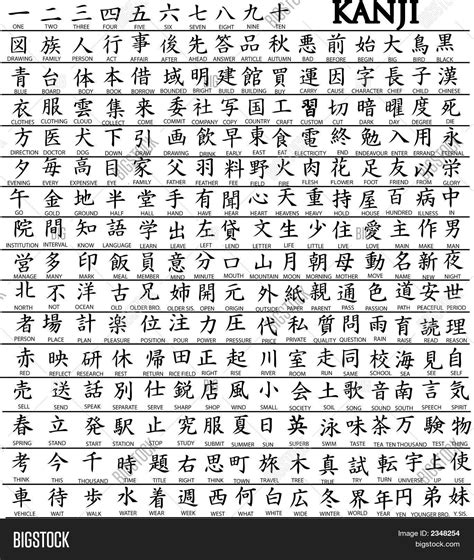 一 二 三 四 五 六 七 八 九 十 KANJI
ONE TWO THREE FOUR FIVE SIX SEVEN EIGHT NINE TEN
図 族 人 行 事 後 先 答 品 秋 悪 前 始 大 鳥 黒
DRAWING FAMILY PERSON ACT AFFAIR AFTER AHEAD ANSWER ARTICLE AUTUMN BAD BEFORE BEGIN BIG BIRD BLACK
青 台 体 本 借 域 明 建 館 買 運 因 字 長 子 漢
BLUE BOARD BODY BOOK BORROW BOUNDED BRIGHT BUILD BUILDING BUY CARRY CAUSE CHARACTER CHIEF CHILD CHINESE
衣 服 雲 集 来 委 社 写 国 工 習 切 暗 曜 度 死
CLOTHES CLOTHING CLOUD COLLECT COME COMMIT COMPANY COPY COUNTRY CRAFT CUSTOM CUT DARK DAY DEGREE DIE
方 医 犬 下 引 画 飲 早 東 食 電 終 勉 入 用 永
DIRECTION DOCTOR DOG DOWN DRAW DRAWING DRINK EARLY EAST EAT ELECTRICITY END ENDEAVOUR ENTER ERRAND ETERNAL
夕 毎 高 目 家 父 羽 料 野 火 肉 花 足 友 以 栄
EVENING EVERY EXPENSIVE EYE FAMILY FATHER FEATHER FEE FIELD FIRE FLESH FLOWER FOOT FRIEND FROM GLORY
午 金 地 半 堂 手 有 聞 心 天 重 持 屋 百 病 中
GO GOLD GROUND HALF HALL HAND HAVE HEAR HEART HEAVEN HEAVY HOLD HOUSE HUNDRED ILLNESS IN
院 間 知 語 学 出 左 貸 文 生 少 住 愛 主 作 男
INSTITUTION INTERVAL KNOW LANGUAGE LEARN LEAVE LEFT LEND LETTER LIFE LITTLE LIVE LOVE MAIN MAKE MAN
営 多 印 飯 員 意 分 口 山 月 朝 母 動 名 新 夜
MANAGE MANY MARK MEAL MEMBER MIND MINUTE MOUTH MOUNTAIN MOON MORNING MOTHER MOVE NAME NEW NIGHT
北 不 洋 古 兄 姉 開 元 外 親 通 色 道 安 世
NORTH NOT OCEAN OLD OLDER BRO. OLDER SIS. OPEN ORIGIN OUTSIDE PARENT PASS PASSION PATH PEACEFUL PERIOD
者 場 計 楽 位 注 力 圧 代 私 質 問 雨 育 読 理
PERSON PLACE PLAN PLEASURE POSITION POUR POWER PRESSURE PRICE PRIVATE QUALITY QUESTION RAIN RAISE READ REASON
赤 映 研 休 帰 六 田 正 起 川 室 走 同 校 海 見 自
RED REFLECT RESEARCH REST RETURN RICE RIGHT RISE RIVER ROOM RUN SAME SCHOOL SEA SEE SELF
売 送 話 別 仕 鋭 店 風 小 会 土 歌 音 南 言 気
SELL SEND SPEAK SEPARATE SERVE SHARP SHOP SMALL SOCIETY SOIL SONG SOUND SOUTH SPEECH SPIRIT
春 立 発 駅 止 究 服 夏 日 英 泳 味 茶 万 験 物
SPRING STAND START STATION STOP STUDY SUBMIT SUMMER SUN SUPERB SWIM TASTE TEA TEN THOUSAND TEST THING
考 今 千 時 題 右 思 町 旅 木 真 試 二 上 使 谷
THINK THIS THOUSAND TIME TITLE RIGHT THINK TOWN TRAVEL TREE TRUE TRY TWO UP USE VALLEY
車 待 歩 水 着 週 西 何 白 広 冬 世 界 年 円 弟 妹
VEHICLE WAIT WALK WATER WEAR WEEK WEST WHAT WHITE WIDE WINTER WORLD YEAR YEN YOUNGER BRO. Y.SIS.
BIGSTOCK
Image ID: 2348254
bigstock.com